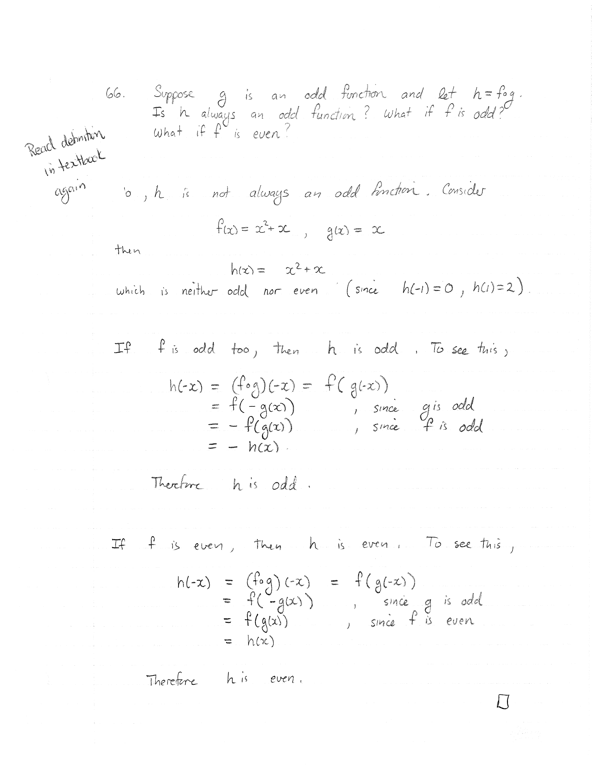 66. Suppose g is an odd function and let h = f∘g.
Is h always an odd function? What if f is odd?
What if f is even?
Read definition
in textbook
again
o, h is not always an odd function. Consider
f(x) = x²+x , g(x) = x
then
h(x) = x²+x
which is neither odd nor even (since h(-1)=0, h(1)=2).
If f is odd too, then h is odd. To see this,
h(-x) = (f∘g)(-x) = f(g(-x))
= f(-g(x)) , since g is odd
= -f(g(x)) , since f is odd
= -h(x).
Therefore h is odd.
If f is even, then h is even. To see this,
h(-x) = (f∘g)(-x) = f(g(-x))
= f(-g(x)) , since g is odd
= f(g(x)) , since f is even
= h(x)
Therefore h is even.
□